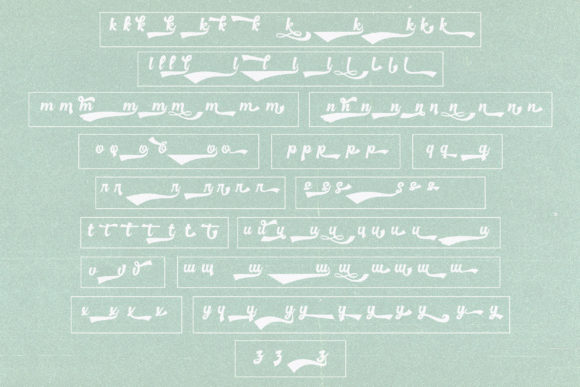 k k k k k k k k k k k k
l l l l l l l l l l l
m m m m m m m m m n n n n n n n n n n
o o o o o o p p p p p q q q
r r r r r r r r s s s s s s
t t t t t t t u u u u u u u u u u u
v v v w w w w w w w w w
x x x x y y y y y y y y y y y y
z z z